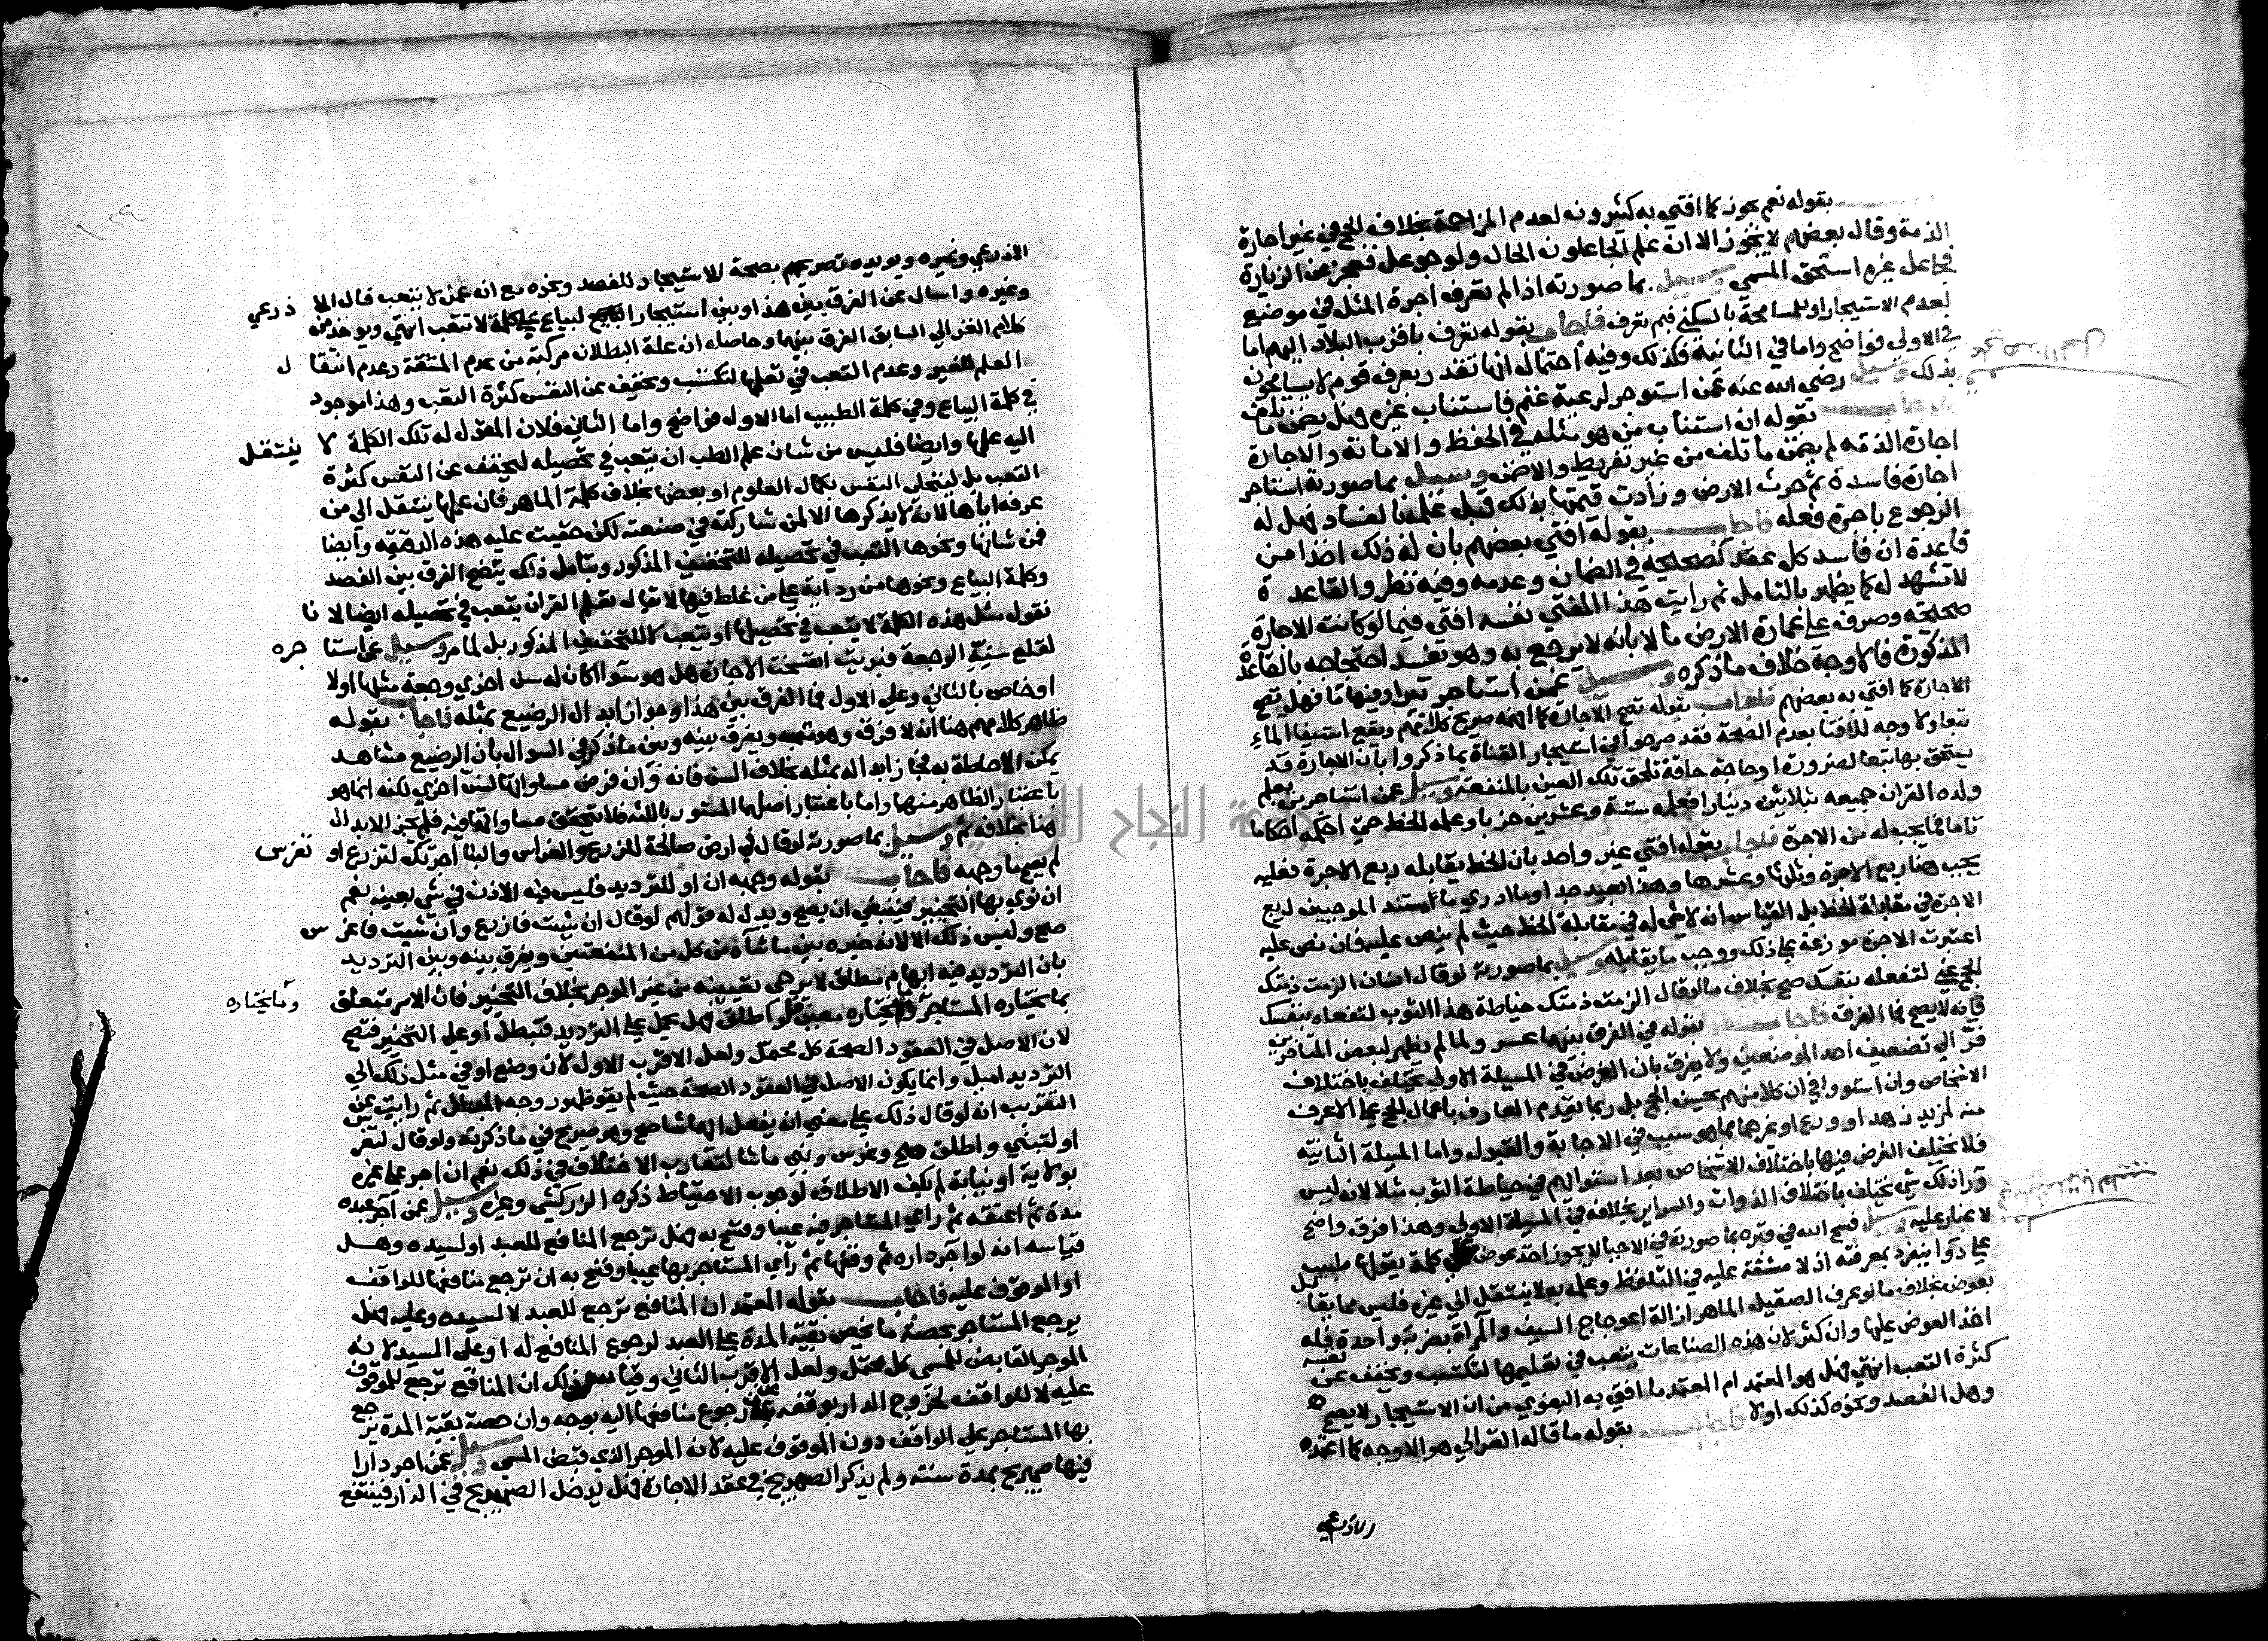 بقوله نعم يجوز كما افتي به كثيرونه لعدم المزاحمة بخلاف الحج في غير اجارة
الذمة وقال بعضهم لا يجوز الا ان علم الجاعلون الحال ولو جوعل فعجز عن الزيارة
فجاعل غيره استحق المسمى وسيل بما صورته اذا لم تعرف اجرة المثل في موضع
لعدم الاستيجار او للمسامحة بالسكني فبم تعرف فاجاب بقوله تعرف باقرب البلاد اليهم اما
في الاولى فواضح واما في الثانية فكذلك وفيه احتمال انها تقدر بعرف قوم لا يسامحون
بذلك وسيل رضي الله عنه عمن استوجر لرعية غنم فاستناب غيره فهل يضمن ما تلف
بقوله ان استناب من هو مثله في الحفظ والامانة والاجارة
اجارة الذمة لم يضمن ما تلف من غير تفريط والا ضمن وسيل بما صورته استاجر
اجارة فاسدة ثم حرث الارض وزادت قيمتها بذلك قبل علمه بالفساد فهل له
الرجوع باجرة فعله فاجاب بقوله افتي بعضهم بان له ذلك اخذا من
قاعدة ان فاسد كل عقد كصحيحه في الضمان وعدمه وفيه نظر والقاعدة
لا تشهد له كما يظهر بالتامل ثم رايت هذا المفتي نفسه افتي فيما لو كانت الاجارة
صحيحة وصرف على عمارة الارض مالا بانه لا يرجع به وهو يفسد احتجاجه بالقاعدة
المذكورة فالاوجه خلاف ما ذكره وسيل عمن استاجر بيرا وفيها ما فهل تصح
الاجارة كما افتي به بعضهم فاجاب بقوله تصح الاجارة كما انه صريح كلامهم ويقع استيفا الماء
تبعا ولا وجه للافتا بعدم الصحة فقد صرحوا في استيجار القناة بما ذكروا بان الاجارة قد
يستحق بها تبعا لضرورة او حاجة حاقة تلحق تلك العين بالمنفعة وسيل عمن استاجر من يعلم
ولده القران جميعه بثلاثين دينارا فعلمه ستة وعشرين حزبا وعلمه الخط حتى احكمه احكاما
تاما فما يجب له من الاجرة فاجاب بقوله افتي غير واحد بان الخط يقابله ربع الاجرة فعليه
يجب هنا ربع الاجرة وثلثها وعشرها وهذا بعيد جدا وما ادري ما مستند الموجبين لربع
الاجرة في مقابلة الخط بل القياس انه لا شي له في مقابلة الخط حيث لم ينص عليه فان نص عليه
اعتبرت الاجرة موزعة على ذلك ووجب ما يقابله وسيل بما صورته لو قال انسان الزمت ذمتك
الحج عني لتفعله بنفسك صح بخلاف ما لو قال الزمت ذمتك خياطة هذا الثوب لتفعله بنفسك
فانه لا يصح فما الفرق فاجاب بقوله في الفرق بينهما عسر ولما لم يظهر لبعض المتاخرين
فر الي تضعيف احد الموضعين ولا يفرق بان الغرض في المسيلة الاولى يختلف باختلاف
الاشخاص وان استووا في ان كلا منهم يحسن الحج بل ربما يقدم العارف باعمال الحج على الاعرف
منه لمزيد زهد او ورع او غيرهما مما هو سبب في الاجابة والقبول واما المسيلة الثانية
فلا يختلف الغرض فيها باختلاف الاشخاص بعد استوائهم في خياطة الثوب مثلا لانه ليس
ورا ذلك شي يختلف باختلاف الذوات والسراير بخلافه في المسيلة الاولى وهذا فرق واضح
لا غبار عليه وسيل فسح الله في قبره بما صورته في الاحيا لا يجوز اخذ عوض على كلمة يقولها طبيب
على دوا ينفرد بمعرفته اذ لا مشقة عليه في التلفظ وعلمه به لا ينتقل الي غيره فليس مما يقابل
بعوض بخلاف ما لو عرف الصقيل الماهر ازالة اعوجاج السيف والمراة بضربة واحدة فله
اخذ العوض عليها وان كثر لان هذه الصناعات يتعب في تعليمها لتكتسب ويخفف عن نفسه
كثرة التعب انتهي فهل هو المعتمد ام المعتمد ما افتي به البغوي من ان الاستيجار لا يصح
وهل الفصد ونحوه كذلك اولا فاجاب بقوله ما قاله الغزالي هو الاوجه كما اعتمده
الاذرعي
الاذرعي وغيره ويويده تصريحهم بصحة الاستيجار للفصد ونحوه مع انه عمل لا يتعب قال الاذرعي
وغيره واسال عن الفرق بين هذا وبين استيجار البياع على كلمة لا تتعب انتهي ويوخذ من
كلام الغزالي السابق الفرق بينهما وحاصله ان علة البطلان مركبة من عدم المشقة وعدم انتقال
العلم للغير وعدم التعب في تعلمها لتكتسب ويخفف عن النفس كثرة التعب وهذا موجود
في كلمة البياع وفي كلمة الطبيب اما الاول فواضح واما الثاني فلان المقول له تلك الكلمة لا ينتقل
اليه علمها وايضا فليس من شان علم الطب ان يتعب في تحصيله ليخفف عن النفس كثرة
التعب بل ليتحلى النفس بكمال العلوم او بعضها بخلاف كلمة الماهر فان علمها ينتقل الى من
عرفه اياها لانه لا يذكرها الا لمن شاركه في صنعته لكن خفيت عليه هذه الدقيقة وايضا
فمن شانها ونحوها التعب في تحصيله للتخفيف المذكور وبتامل ذلك يتضح الفرق بين الفصد
وكلمة البياع ونحوها من رد اية على من غلط فيها لا يقال تعلم القران يتعب في تحصيله ايضا لانا
نقول مثل هذه الكلمة لا يتعب في تحصيلها او يتعب لا للتخفيف المذكور بل لما مر وسيل عمن استاجره
لقلع سنه الوجعة فبريت انفسخت الاجارة هل هو سوا اكان له سن اخري وجعة مثلها اولا
او خاص بالثاني وعلى الاول فما الفرق بين هذا وجواز ابدال الرضيع بمثله فاجاب بقوله
ظاهر كلامهم هنا انه لا فرق وهو متجه ويفرق بينه وبين ما ذكر في السوال بان الرضيع مشاهد
يمكن الاحاطة به فجاز ابداله بمثله بخلاف السن فانه وان فرض مساواتها لسن اخري لكنه انما هو
باعتبار الظاهر منها واما باعتبار اصلها المستور باللثة فلا تتحقق مساواتها فيه فلم يجز الابدال
هنا بخلافه ثم وسيل بما صورته لو قال في ارض صالحة للزرع والغراس والبنا اجرتك لتزرع او تغرس
لم يصح ما وجهه فاجاب بقوله وجهه ان او للترديد فليس فيه الاذن في شي بعينه نعم
ان نوي بها التخيير فينبغي ان يصح ويدل له قولهم لو قال ان شيت فازرع وان شيت فاغرس
صح وليس ذلك الا لانه خيره بين ما شاه من كل من المنفعتين ويفرق بينه وبين الترديد
بان الترديد فيه ابهام مطلق لا يرجى تعيينه من غير الموجر بخلاف التخيير فان الامر متعلق
بما يختاره المستاجر وما يختاره معين فلو اطلق فهل يحمل على الترديد فتبطل او على التخيير فتصح
لان الاصل في العقود الصحة كل محتمل ولعل الاقرب الاول لان وضع او في مثل ذلك الي
الترديد اميل وانما يكون الاصل في العقود الصحة حيث لم يقو ظهور وجه البطلان ثم رايت عن
التقريب انه لو قال ذلك على معني انه يفعل ايهما شا صح وهو صريح في ما ذكرته ولو قال لتغرس
او لتبني واطلق صح وغرس وبني ما شا لتقارب الاختلاف في ذلك نعم ان اجر على غيره
بولاية او نيابة لم يكف الاطلاق لوجوب الاحتياط ذكره الزركشي وغيره وسيل عمن اجر عبده
مدة ثم اعتقه ثم راي المستاجر فيه عيبا وفسخ به فهل ترجع المنافع للعبد او لسيده وهل
قياسه انه لو اجر داره ثم وقفها ثم راي المستاجر بها عيبا وفسخ به ان ترجع منافعها للواقف
او الموقوف عليه فاجاب بقوله المعتمد ان المنافع ترجع للعبد لا لسيده وعليه فهل
يرجع المستاجر بحصة ما يخص بقية المدة على العبد لرجوع المنافع له او على السيد لانه
الموجر القابض للمسمى كل محتمل ولعل الاقرب الثاني وقياس ذلك ان المنافع ترجع للموقوف
عليه لا للواقف لخروج الدار بوقفه عن رجوع منافعها اليه بوجه وان حصة بقية المدة يرجع
بها المستاجر على الواقف دون الموقوف عليه لانه الموجر الذي قبض المسمى وسيل عمن اجر دارا
فيها صهريج بمدة سنة ولم يذكر الصهريج في عقد الاجارة فهل يدخل الصهريج في الدار فينتفع
وما يختاره